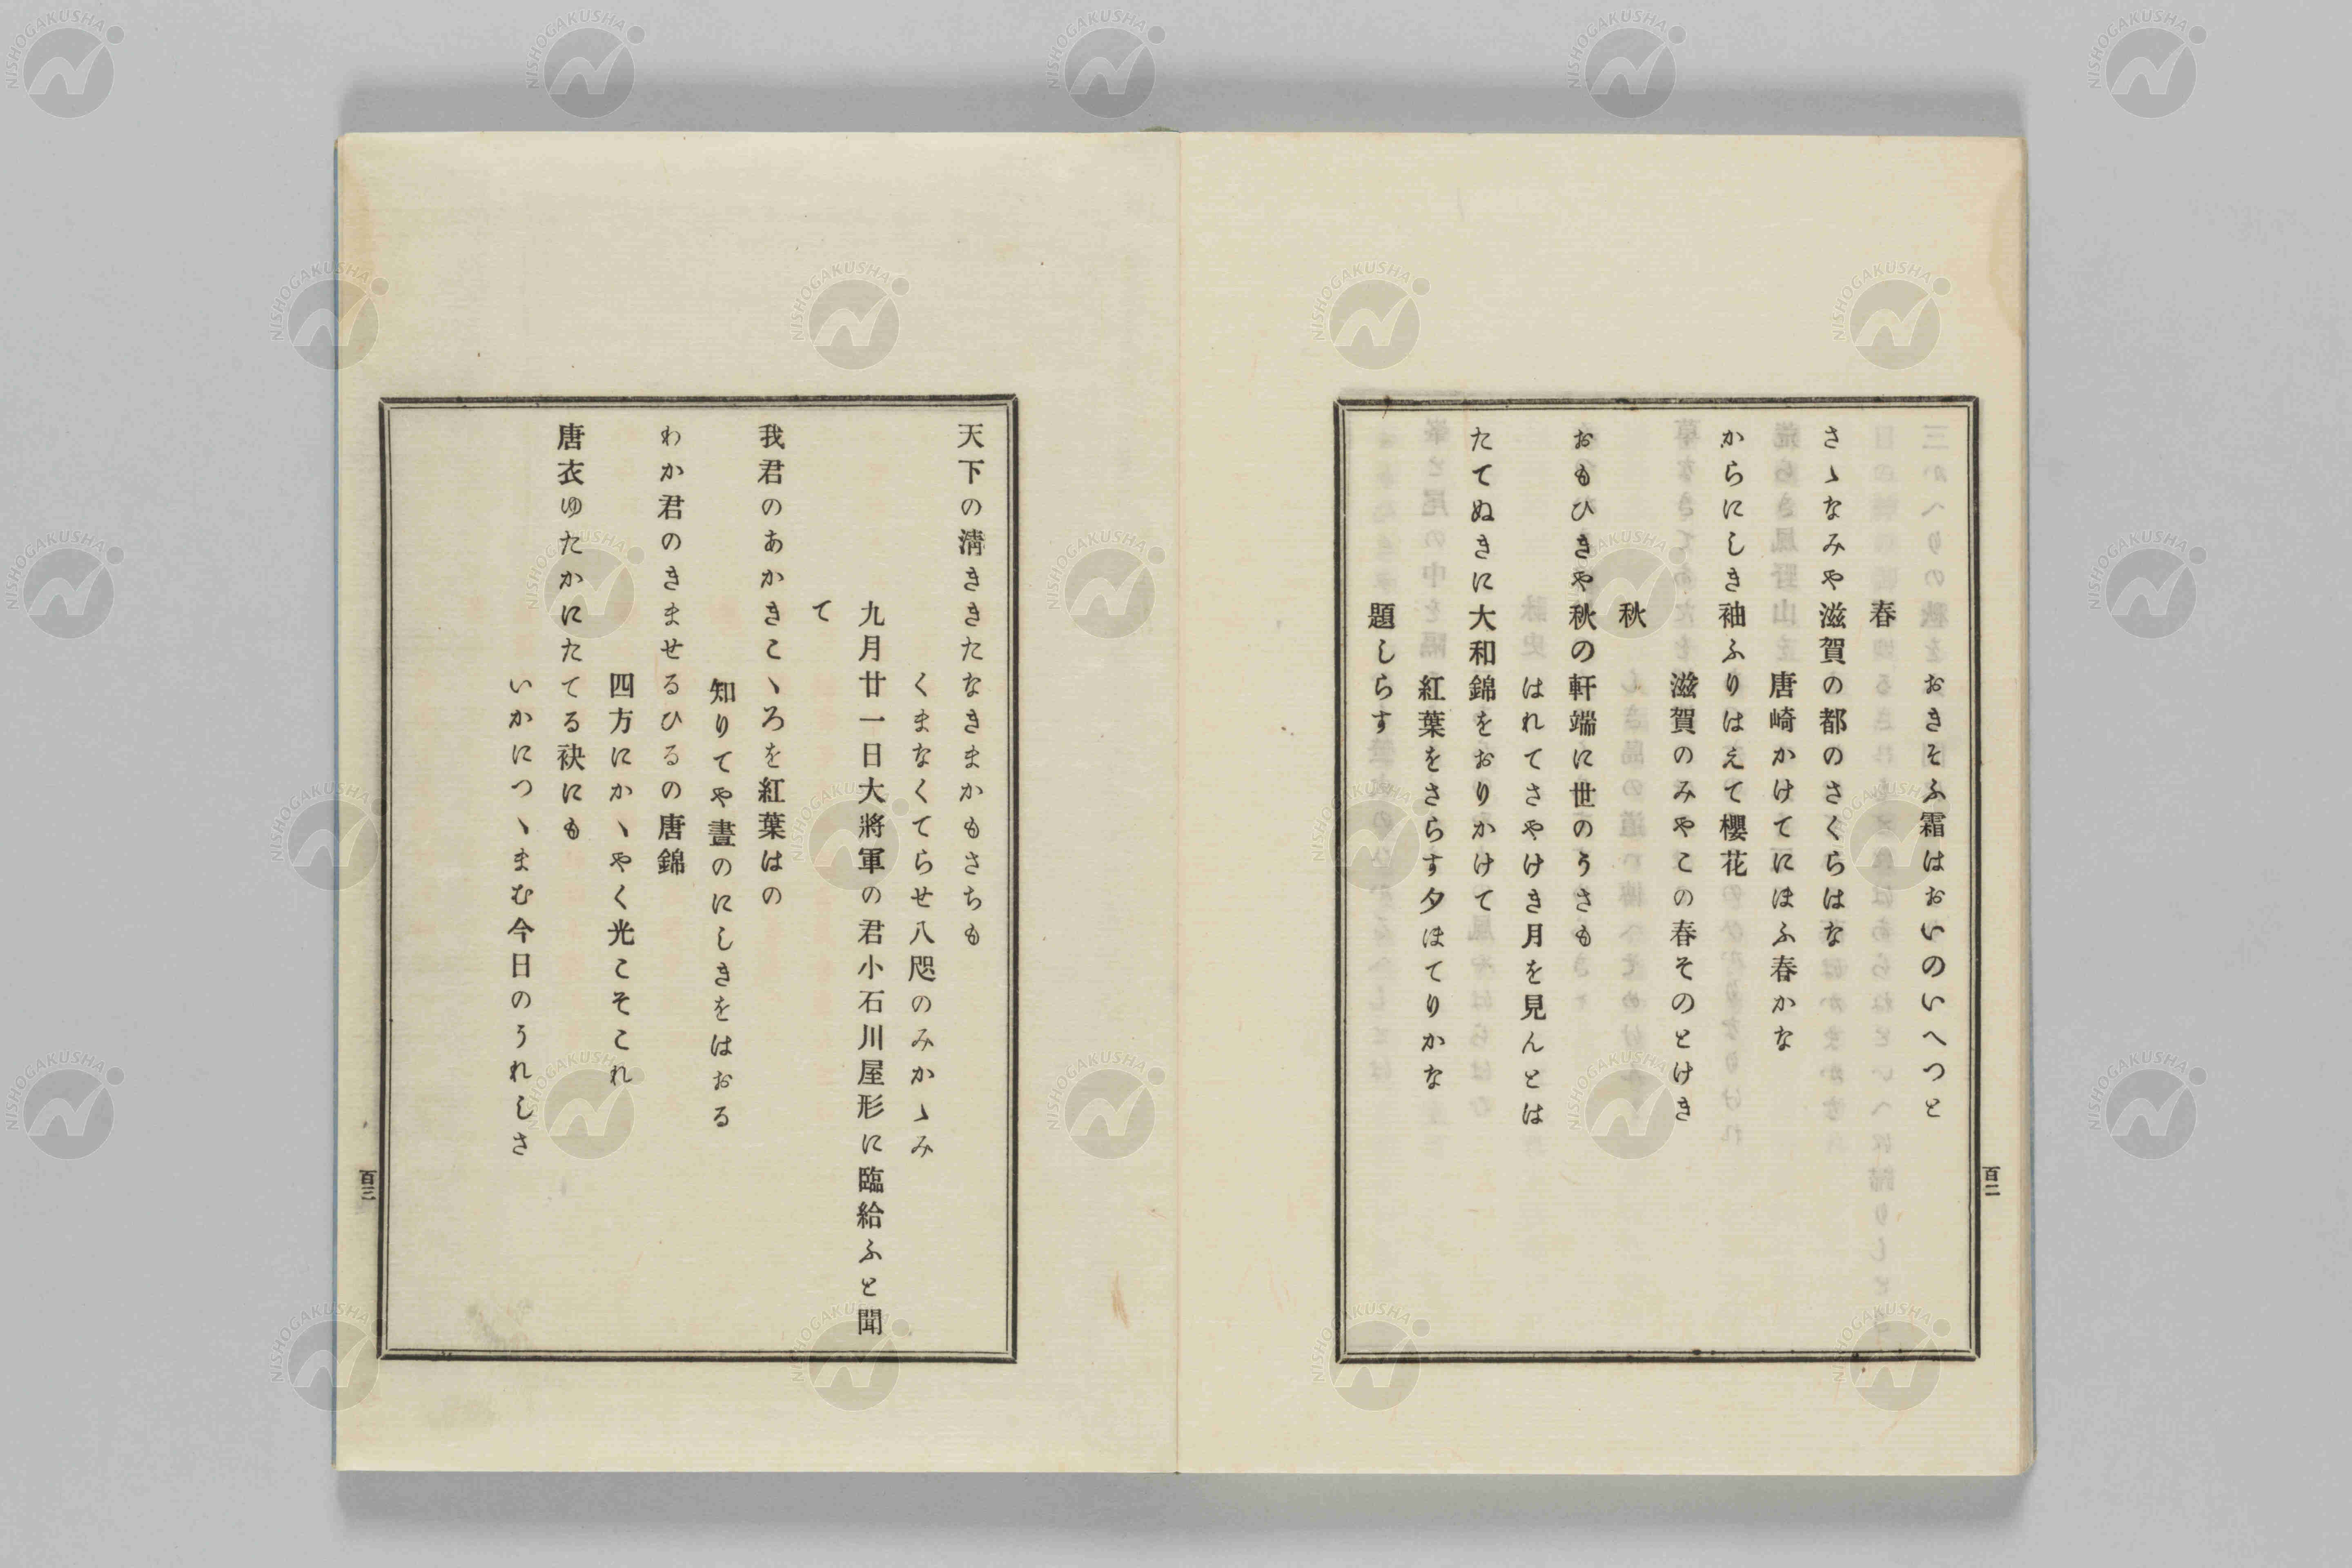 おきそふ霜はおいのいへつと
春
さゝなみや滋賀の都のさくらはな
唐崎かけてにほふ春かな
からにしき袖ふりはえて櫻花
滋賀のみやこの春そのとけき
秋
おもひきや秋の軒端に世のうさも
はれてさやけき月を見んとは
たてぬきに大和錦をおりかけて
紅葉をさらす夕ほてりかな
題しらす
百二
天下の淸ききたなきまかもさちも
くまなくてらせ八咫のみかゝみ
九月廿一日大將軍の君小石川屋形に臨給ふと聞
て
我君のあかきこゝろを紅葉はの
知りてや晝のにしきをはおる
わか君のきませるひるの唐錦
四方にかゝやく光こそこれ
唐衣ゆたかにたてる袂にも
いかにつゝまむ今日のうれしさ
百三
NISHOGAKUSHA